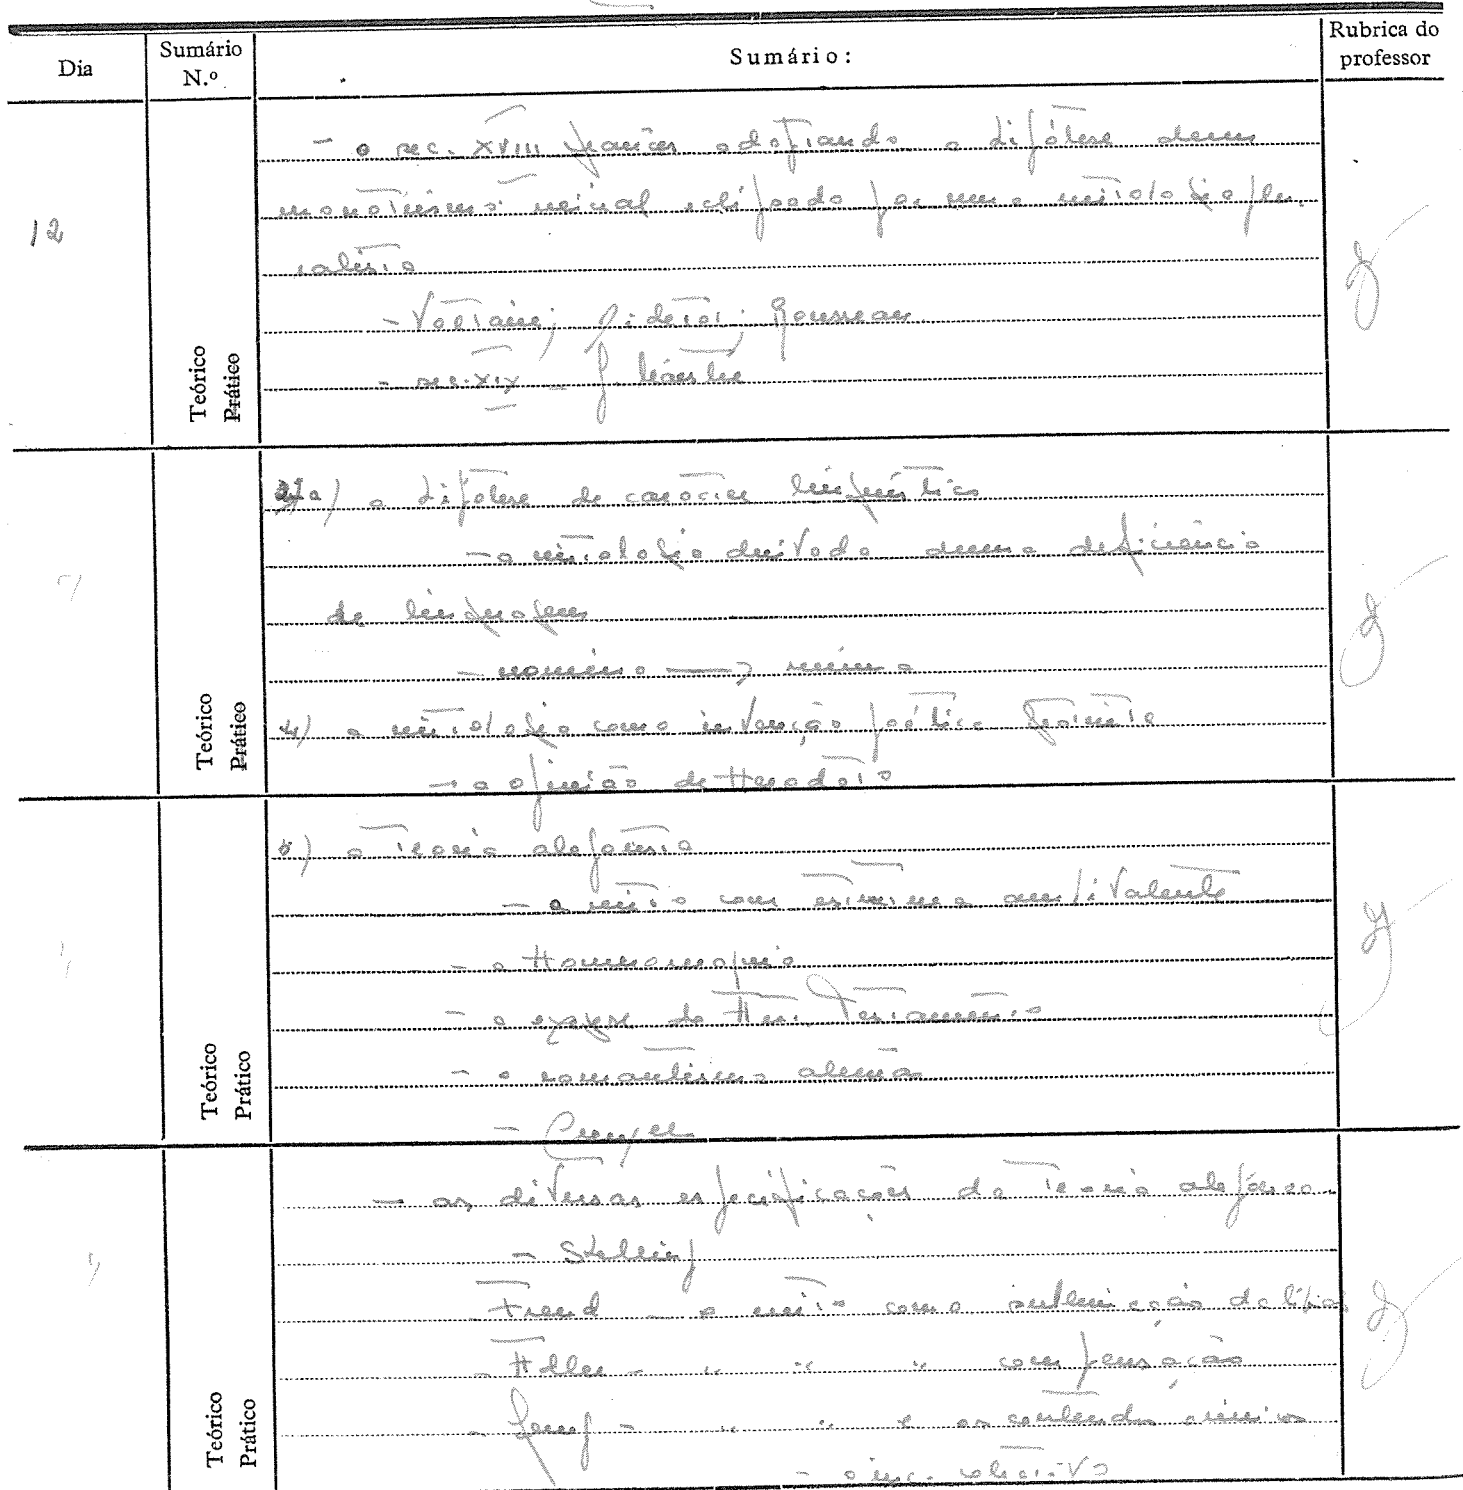 Dia
Sumário N.º
Sumário:
Rubrica do professor
12
- o séc. XVIII francês adoptando a hipótese dum
monoteísmo inicial eclipsado por uma mitologia plu-
ralista
- Voltaire; Diderot; Rousseau
- séc. XIX -
Teórico
Prático
a) a hipótese de carácter linguístico
- a mitologia derivada duma deficiência
de linguagem
- nomina → numina
Teórico
Prático
4) a mitologia como invenção poética gratuita
- a opinião de Heródoto
5) a teoria alegórica
- o mito com estrutura ambivalente
- a
- a exegese do Testamento
- o romantismo alemão
- Creuzer
Teórico
Prático
- as diversas especificações da teoria alegórica
- Schelling
- Freud - o mito como sublimação da líbido
- Adler - " " " compensação
- Jung - " " " os conteúdos
- o inc. colectivo
Teórico
Prático